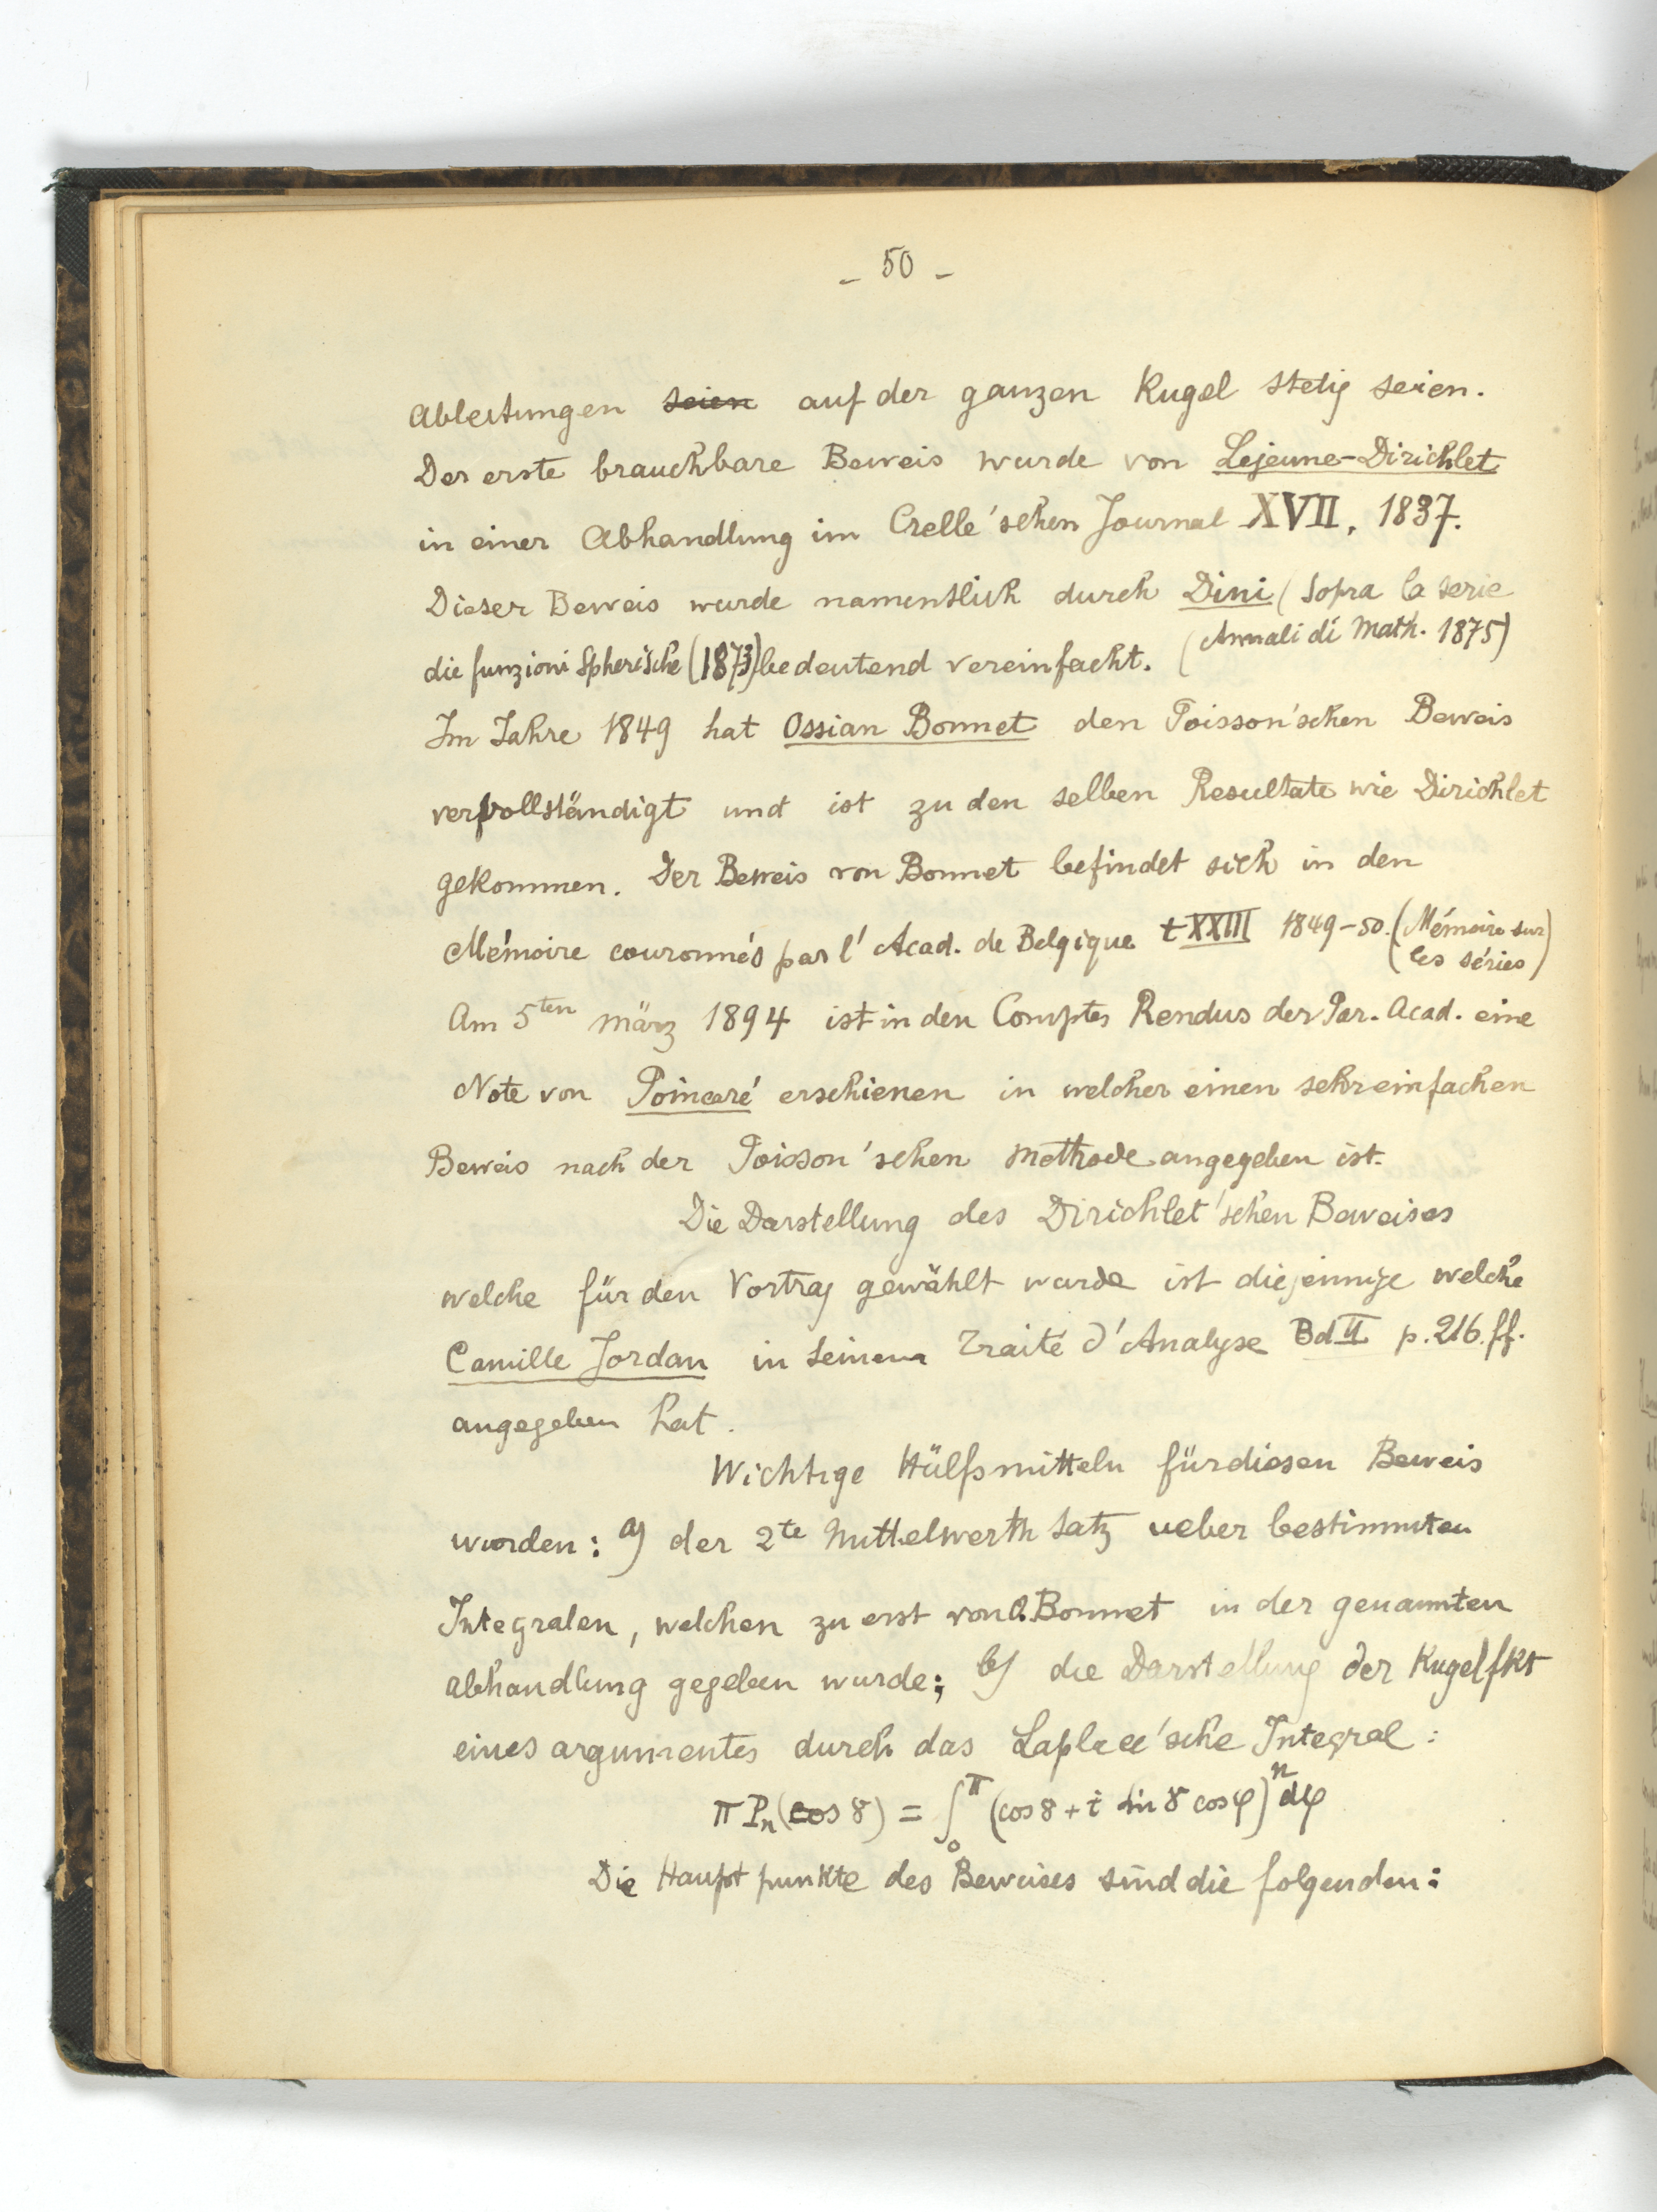 - 50 -
Ableitungen seien auf der ganzen Kugel stetig seien.
Der erste brauchbare Beweis wurde von Lejeune-Dirichlet
in einer Abhandlung im Crelle'schen Journal XVII, 1837.
Dieser Beweis wurde namentlich durch Dini (Sopra la serie
die funzioni Spherische (1873) bedeutend vereinfacht. (Annali di Math. 1875)
Im Jahre 1849 hat Ossian Bonnet den Poisson'schen Beweis
vervollständigt und ist zu den selben Resultate wie Dirichlet
gekommen. Der Beweis von Bonnet befindet sich in den
Mémoire couronnés par l'Acad. de Belgique t XXIII 1849-50. (Mémoire sur
les séries)
Am 5ten März 1894 ist in den Comptes Rendus der Par. Acad. eine
Note von Poincaré erschienen in welcher einen sehr einfachen
Beweis nach der Poisson'schen Methode angegeben ist.
Die Darstellung des Dirichlet'schen Beweises
welche für den Vortrag gewählt wurde ist diejennige welche
Camille Jordan in seinem Traité d'Analyse Bd II p. 216. ff.
angegeben hat.
Wichtige Hülfsmitteln für diesen Beweis
worden: a) der 2te Mittelwerth Satz ueber bestimmten
Integralen, welchen zu erst von O. Bonnet in der genannten
Abhandlung gegeben wurde; b) die Darstellung der Kugelfkt
eines argumentes durch das Laplace'sche Integral:
π Pn (cos γ) = ∫₀^π (cos γ + i sin γ cos φ)^n dφ
Die Hauptpunkte des Beweises sind die folgenden: